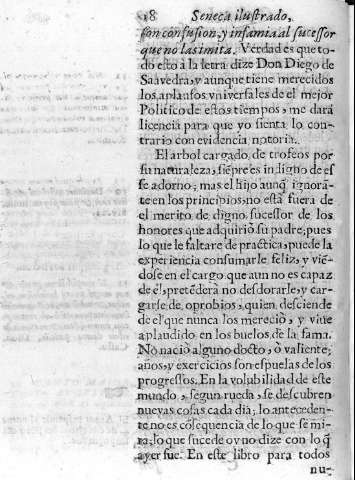 18 Seneca ilustrado,
son confusion, y infamia al sucessor
que no las imita. Verdad es que to-
do esto à la letra dize Don Diego de
Saavedra, y aunque tiene merecidos
los aplausos vniversales de el mejor
Politico de estos tiempos, me dará
licencia para que yo sienta lo con-
trario con evidencia notoria.
El arbol cargado de trofeos por
su naturaleza, siẽpre es indigno de es
se adorno; mas el hijo aunq̃ ignorã-
te en los principios, no está fuera de
el merito de digno sucessor de los
honores que adquirió su padre; pues
lo que le faltare de practica, puede la
experiencia consumarle feliz, y viẽ-
dose en el cargo que aun no es capaz
de èl, pretẽderà no desdorarle, y car-
garse de oprobios, quien desciende
de el que nunca los mereciò, y viue
aplaudido en los buelos de la fama.
No naciò alguno docto, ò valiente;
años, y exercicios son espuelas de los
progressos. En la volubilidad de este
mundo, segun rueda, se descubren
nuevas cosas cada dia; lo anteceden-
te no es cõsequencia de lo que se mi-
ra; lo que sucede oy no dize con lo q̃
ayer fue. En este libro para todos
nu-